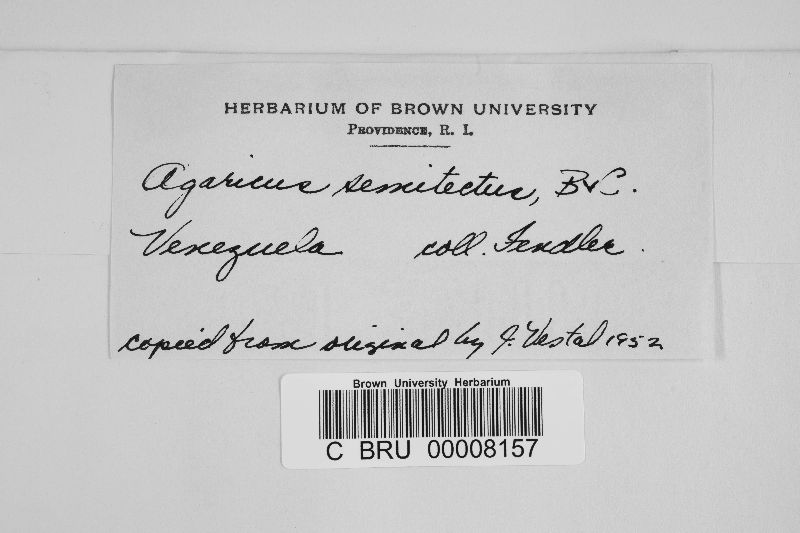 HERBARIUM OF BROWN UNIVERSITY
PROVIDENCE, R. I.
Agaricus semitectus, B&C.
Venezuela coll. Fendler.
copied from original by J. Vestal 1952
Brown University Herbarium
C BRU 00008157